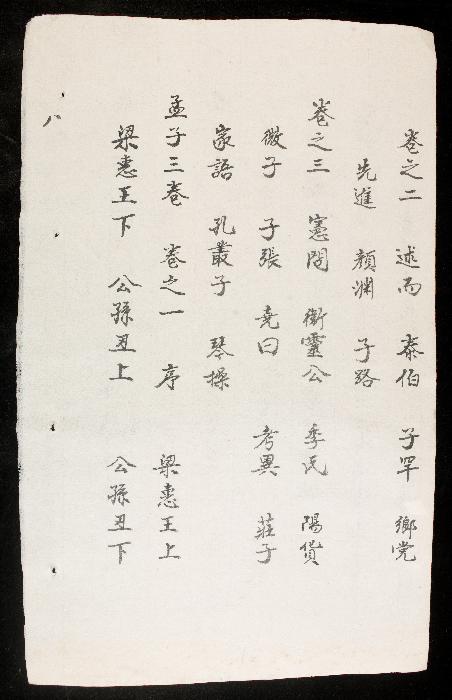 卷之二 述而 泰伯 子罕 鄉党
先進 顏渊 子路
卷之三 憲問 衛靈公 季氏 陽貨
微子 子張 堯曰 考異 莊子
家語 孔叢子 琴操
孟子三卷 卷之一 序 梁惠王上
梁惠王下 公孫丑上 公孫丑下
八